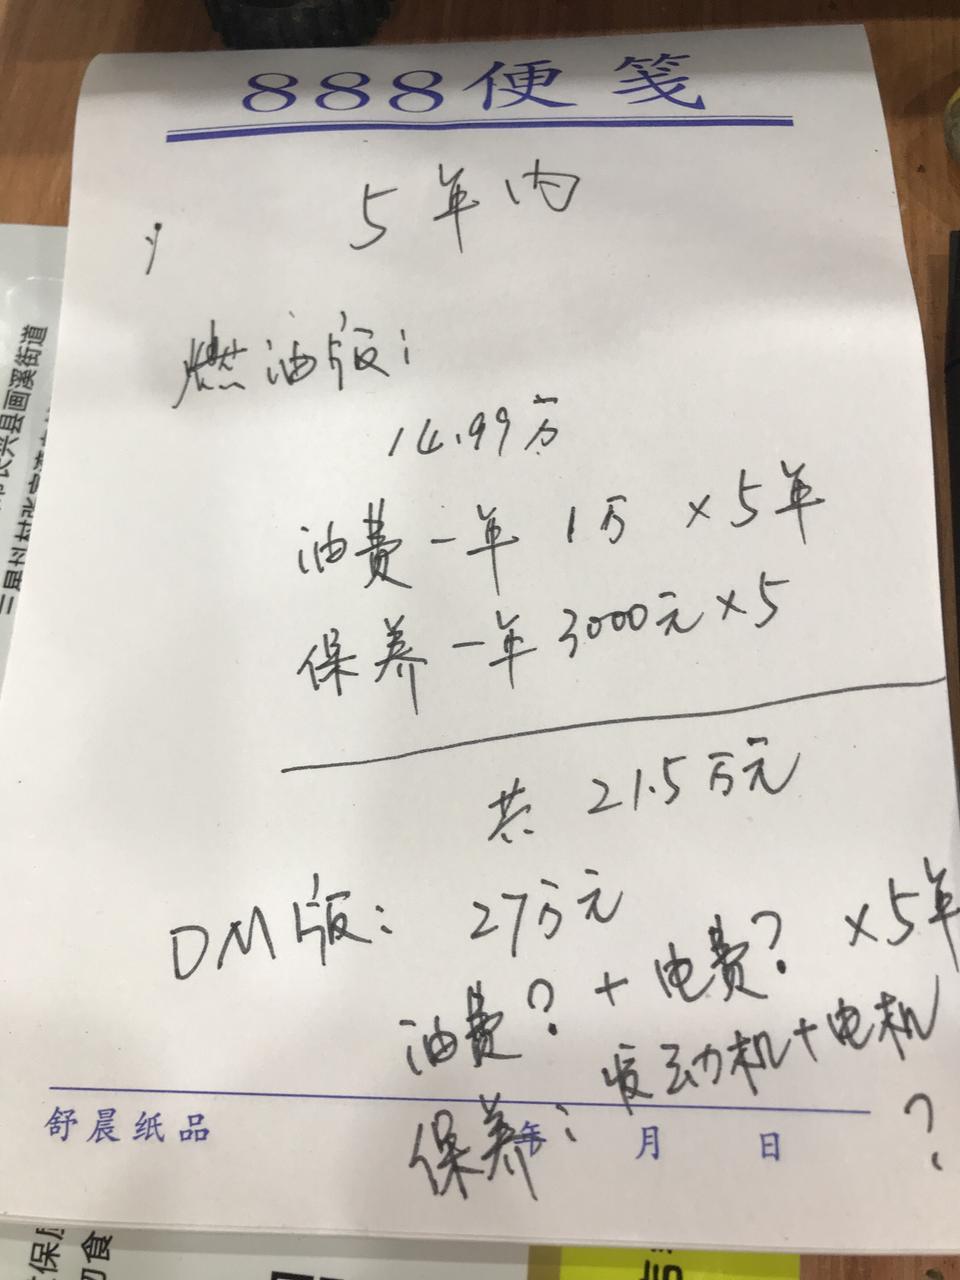 888便笺
5年内
燃油版:
14.99万
油费一年 1万 ×5年
保养一年3000元×5
共 21.5万元
DM版: 27万元
油费? + 电费? ×5年
保养: 发动机+电机 ?
舒晨纸品 年 月 日
兴县画溪街道